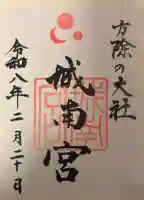 方除の大社
城南宮
令和八年二月二十日